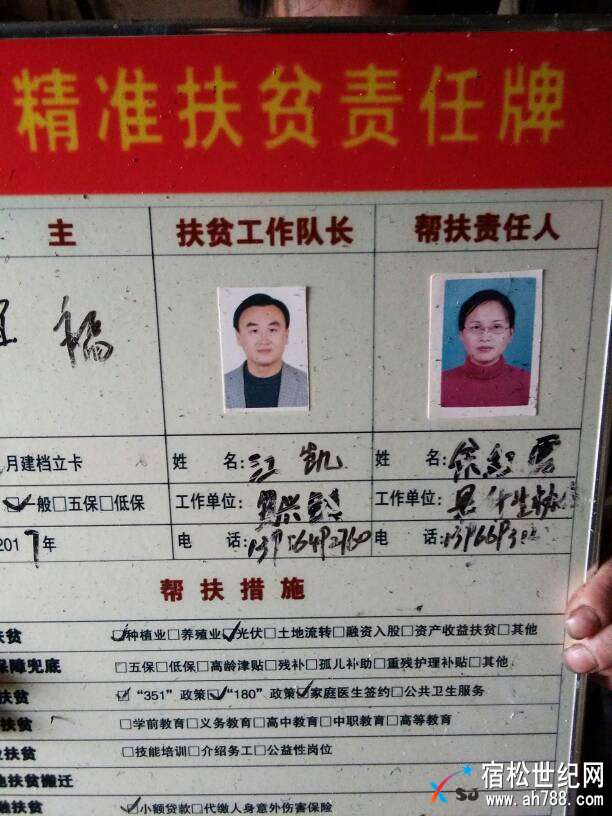 精准扶贫责任牌
主 扶贫工作队长 帮扶责任人
福
月建档立卡 姓 名:江凯 姓 名:
☑一般□五保□低保 工作单位: 工作单位:县
2017年 电 话: 电 话:
帮扶措施
扶贫 ☑种植业□养殖业☑光伏□土地流转□融资入股□资产收益扶贫□其他
保障兜底 □五保□低保□高龄津贴□残补□孤儿补助□重残护理补贴□其他
扶贫 ☑“351”政策☑“180”政策☑家庭医生签约□公共卫生服务
扶贫 □学前教育□义务教育□高中教育□中职教育□高等教育
业扶贫 □技能培训□介绍务工□公益性岗位
地扶贫搬迁
融扶贫 ☑小额贷款□代缴人身意外伤害保险
宿松世纪网
www.ah788.com